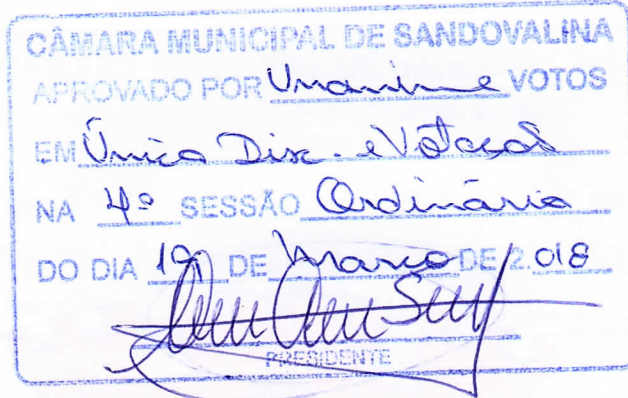 CÂMARA MUNICIPAL DE SANDOVALINA
APROVADO POR Unanime VOTOS
EM Única Disc. e Votacaõ
NA 4ª SESSÃO Ordinária
DO DIA 19 DE Março DE 2.018
PRESIDENTE